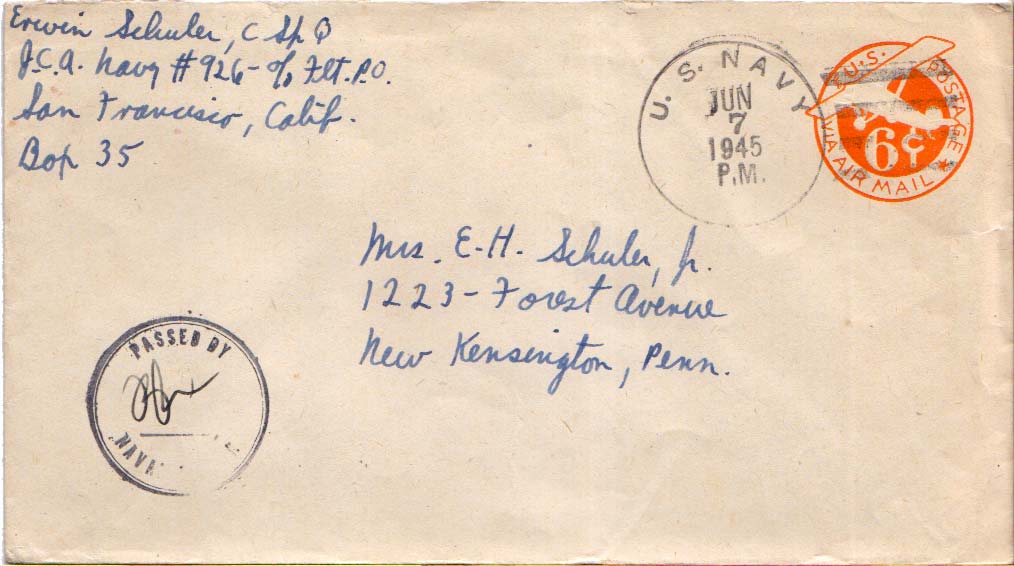 Erwin Schuler, C Sp Q
J.C.A. Navy #926 - c/o Flt. P.O.
San Francisco, Calif.
Box 35
U. S. NAVY
JUN
7
1945
P.M.
U.S. POSTAGE
6¢
VIA AIR MAIL
Mrs. E. H. Schuler, Jr.
1223 - Forest Avenue
New Kensington, Penn.
PASSED BY